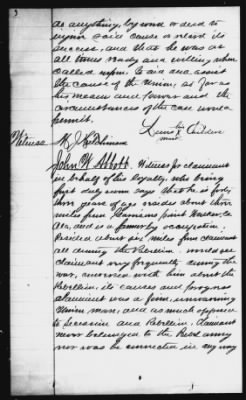 3
do anything, by word or deed to
injure said cause or retard its
success, and that he was at
all times ready and willing when
called upon, to aid and assist
the cause of the Union, as far as
his means and power and the
circumstances of the case would
permit.
Lewis Childers
mark
Witness
John W. Abbott. Witness for claimant
in behalf of his loyalty, who being
first duly sworn says that he is forty
years of age resides about three
miles from
Ala, and is a farmer by occupation.
Resided about six miles from claimant
all during the Rebellion. Would see
claimant very frequently during the
war, conversed with him about the
Rebellion, its causes and progress
claimant was a firm, unwavering
Union man, and as much opposed
to Secession and Rebellion. Claimant
never belonged to the Rebel army
nor was he connected in any way